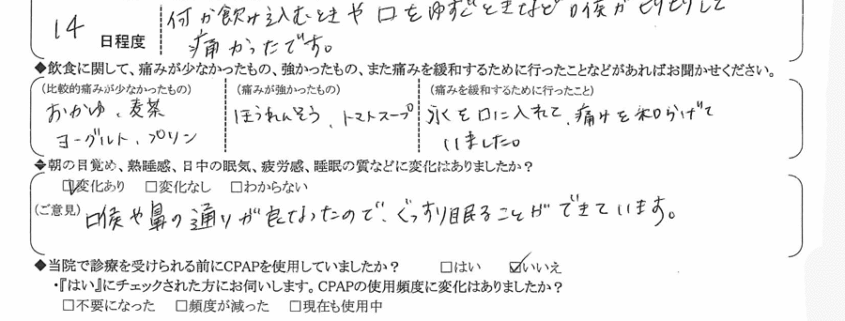 14 日程度
何か飲み込むときや口をゆすぐときなど喉がヒリヒリして
痛かったです。
◆飲食に関して、痛みが少なかったもの、強かったもの、また痛みを緩和するために行ったことなどがあればお聞かせください。
(比較的痛みが少なかったもの)
おかゆ、麦茶
ヨーグルト、プリン
(痛みが強かったもの)
ほうれんそう、トマトスープ
(痛みを緩和するために行ったこと)
氷を口に入れて、痛みを和らげて
いました。
◆朝の目覚め、熟睡感、日中の眠気、疲労感、睡眠の質などに変化はありましたか?
☑変化あり □変化なし □わからない
(ご意見) 喉や鼻の通りが良くなったので、ぐっすり眠ることができています。
◆当院で診療を受けられる前にCPAPを使用していましたか? □はい ☑いいえ
・『はい』にチェックされた方にお伺いします。CPAPの使用頻度に変化はありましたか?
□不要になった □頻度が減った □現在も使用中